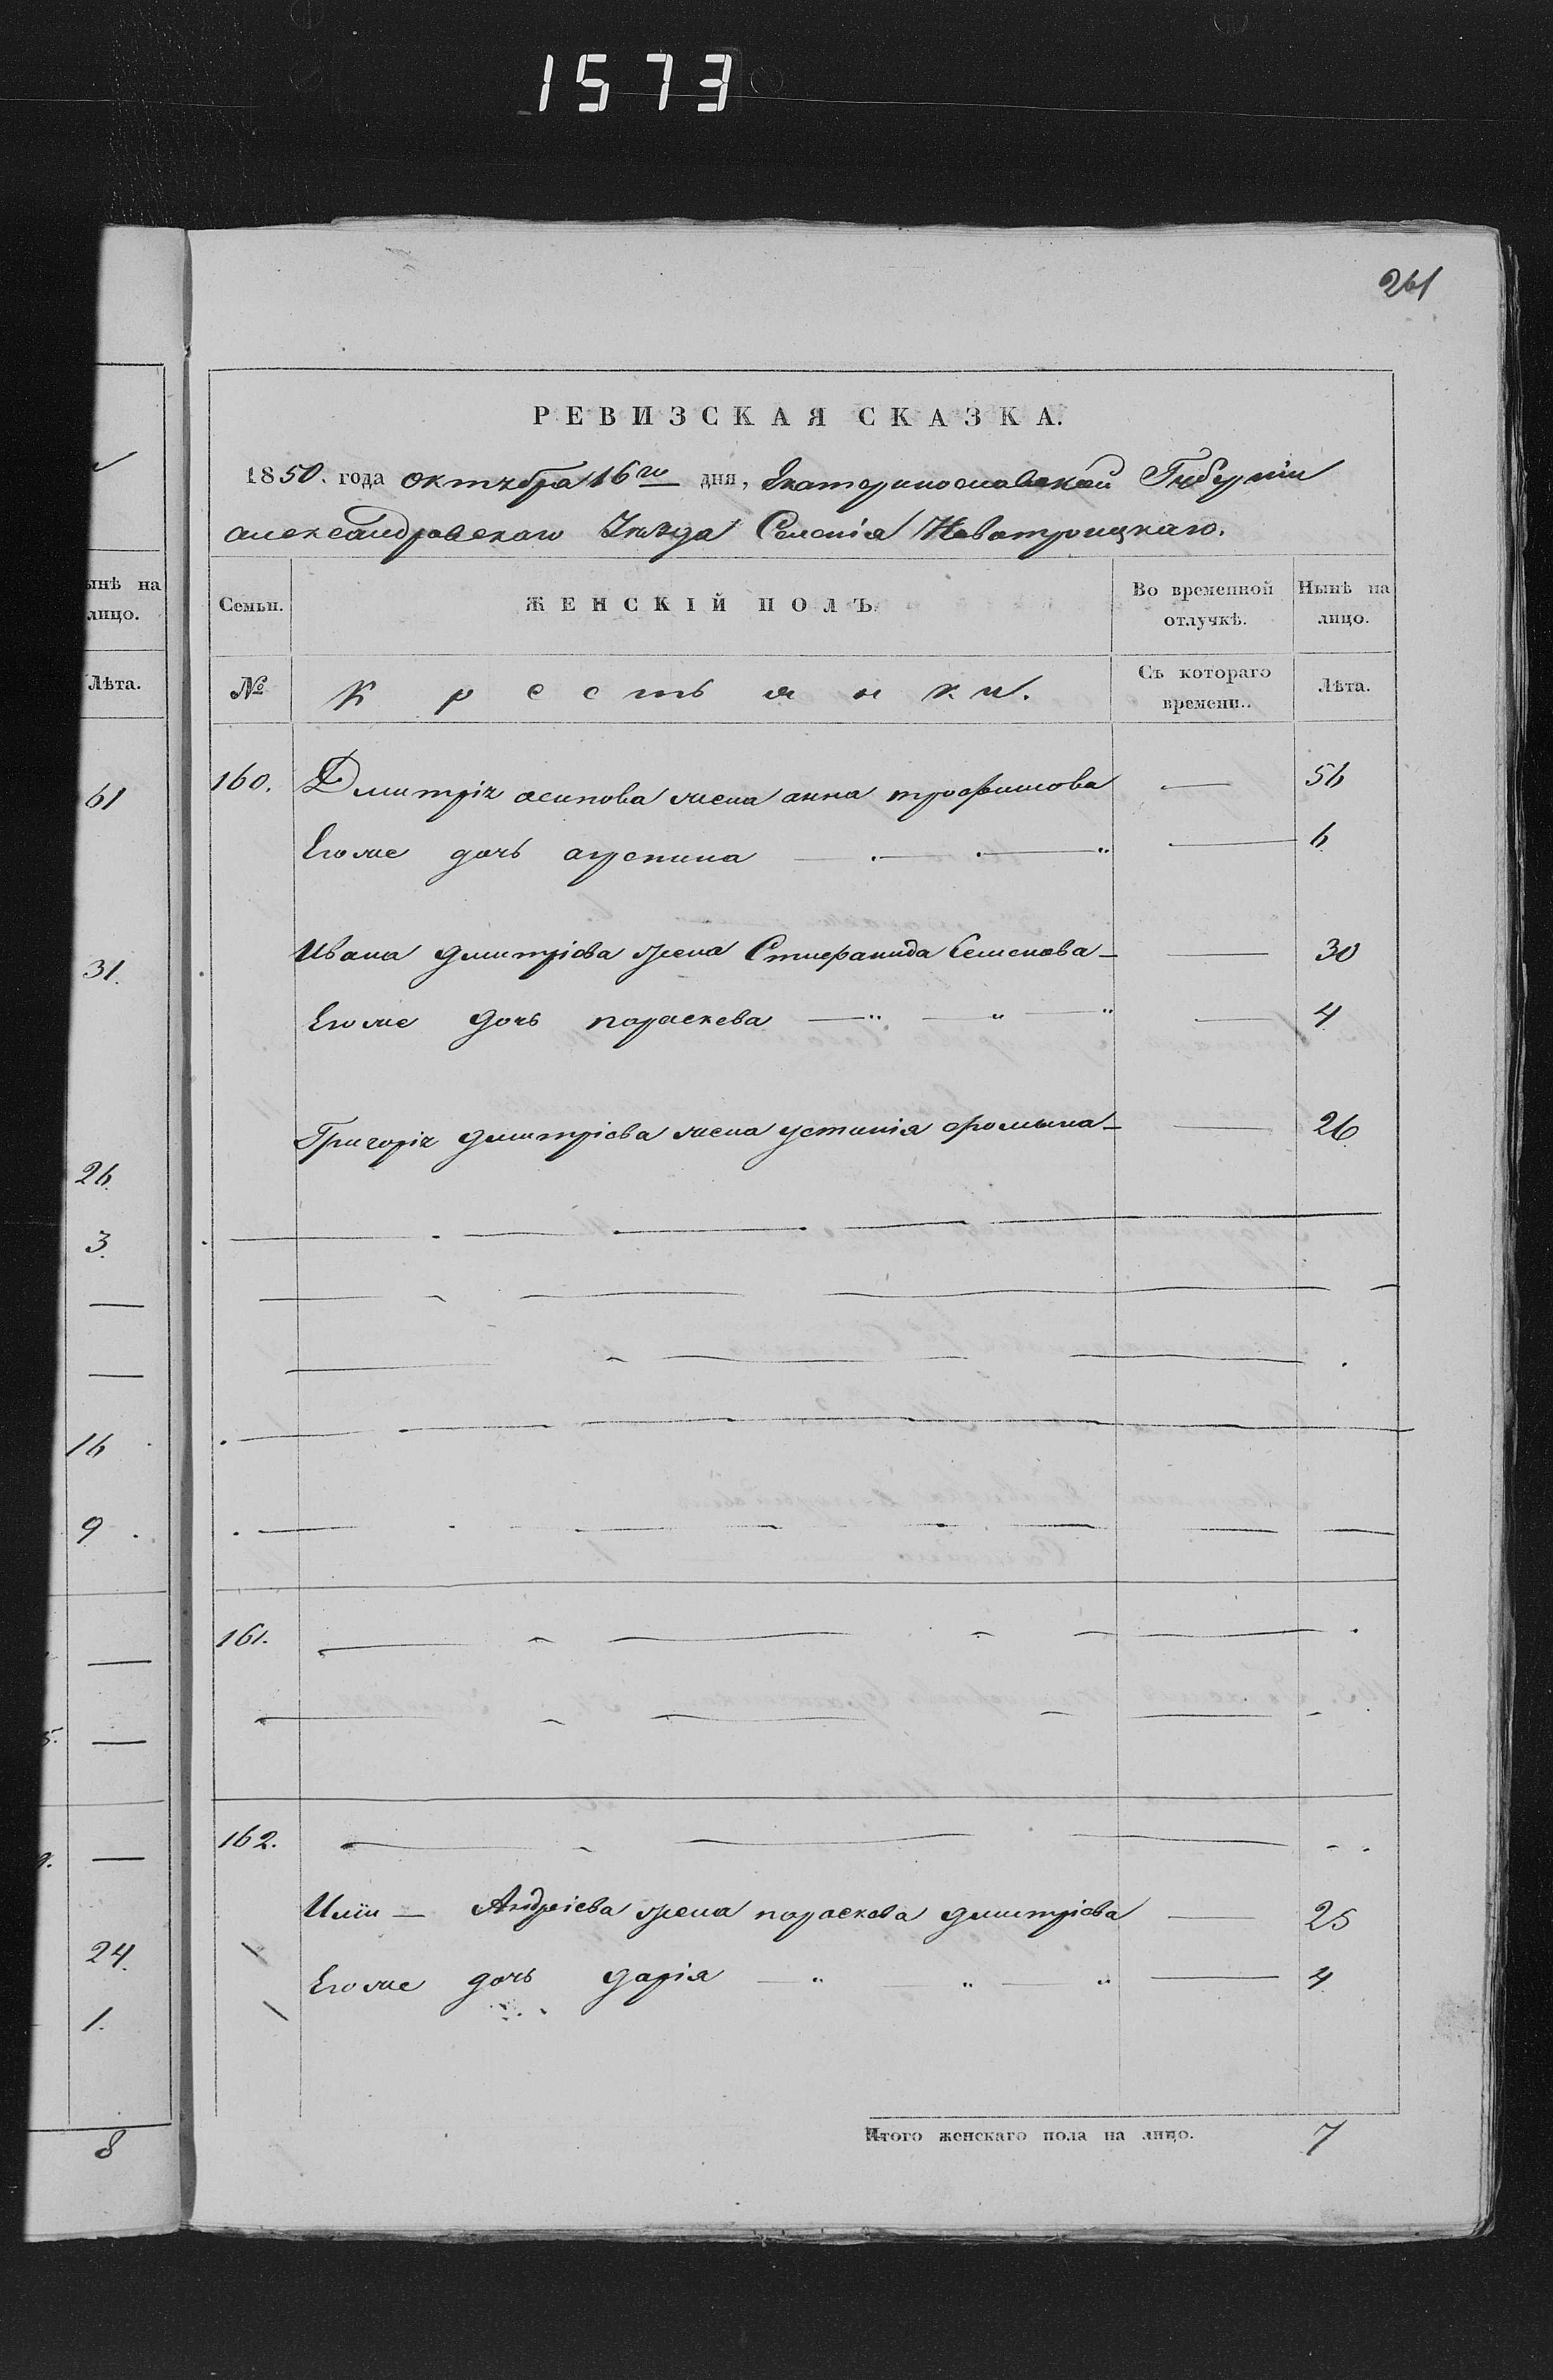 1573
261
РЕВИЗСКАЯ СКАЗКА.
1850. года октября 16го дня, Екатеринославской Губернии
александровскаго Уезда Селенія Новотроицкаго.
ынѣ на
лицо.
Семьи.
ЖЕНСКІЙ ПОЛЪ.
Во временной
отлучкѣ.
Нынѣ на
лицо.
Лѣта.
№
Крестьянки.
Съ котораго
времени..
Лѣта.
61
160. Дмитрія осипова жена анна трофимова — 56
Его же дочь агрепина — 6
31.
Ивана дмитріева жена Стефанида Семенова — 30
Его же дочь параскева — " — " — " — 4
Григорія дмитріева жена устинія фомына — 26
26.
3.
16
9
161.
5.
162.
9.
Иліи — Андріева жена параскева дмитріева — 25
24.
Его же дочь дарія — " — " — " — 4
1.
Итого женскаго пола на лицо. 7
8